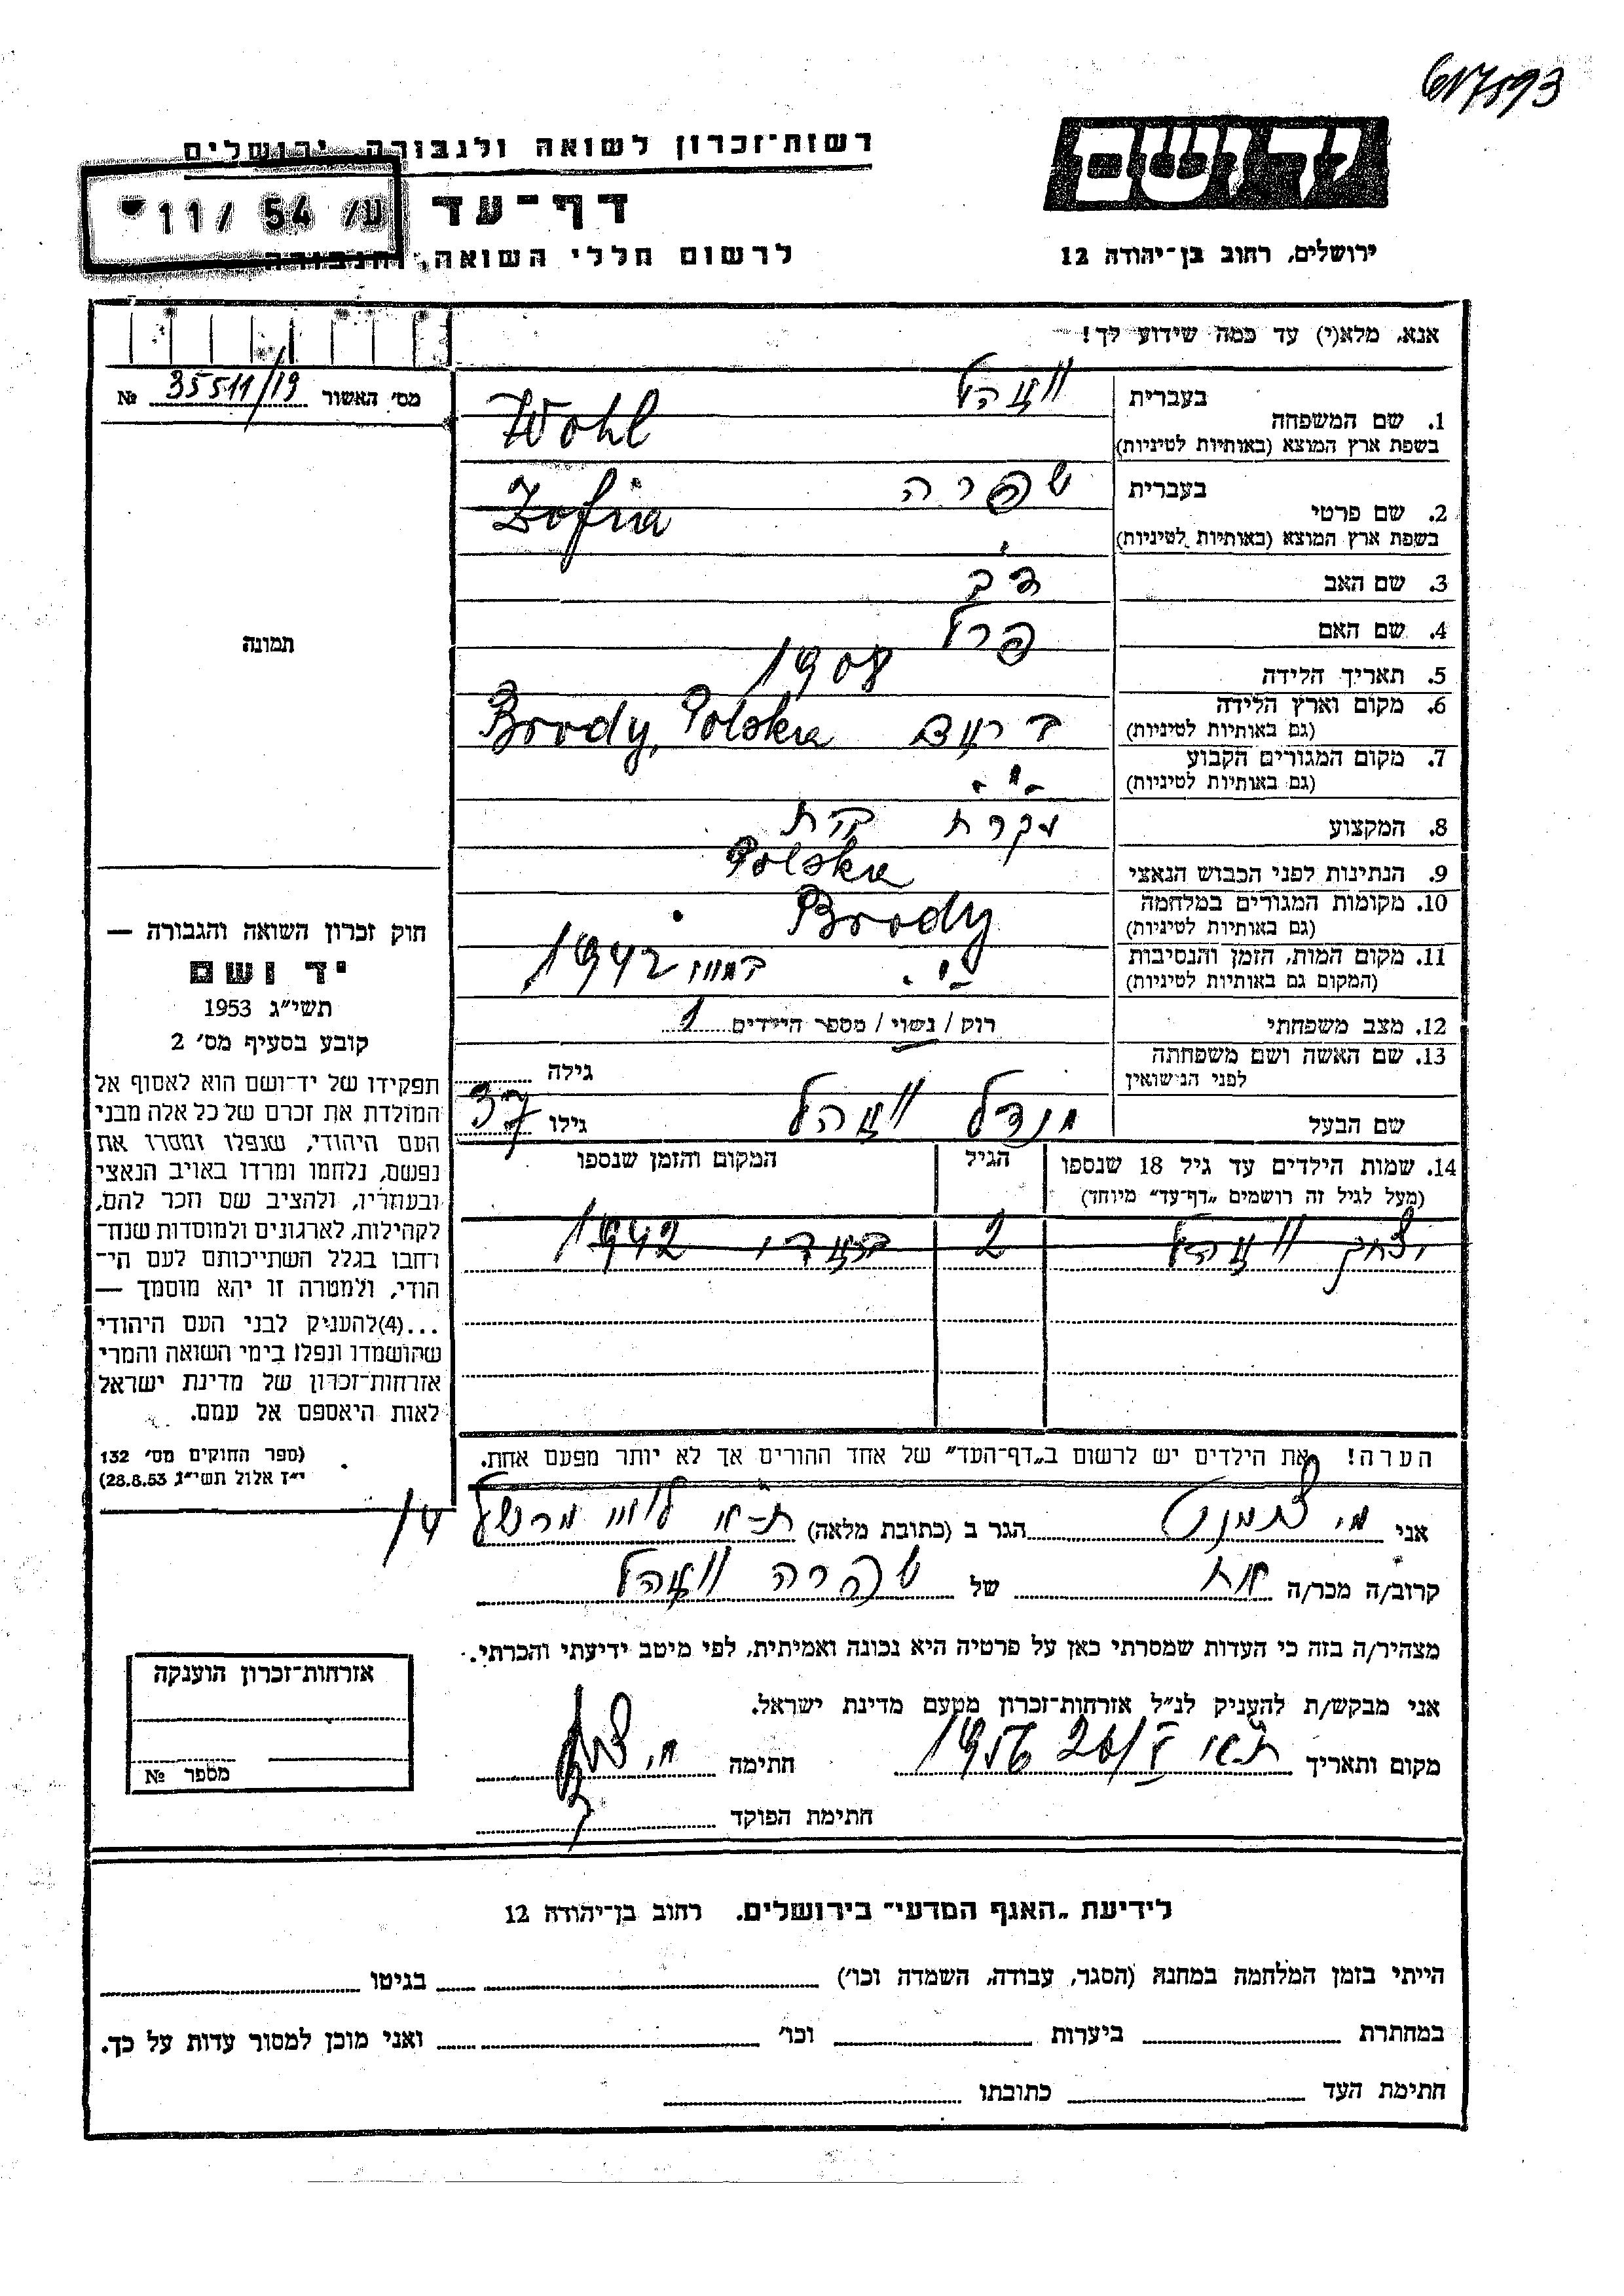 617593
יד ושם
רשות־זכרון לשואה ולגבורה ירושלים
דף־עד
ע/ 54 /11
לרשום חללי השואה והגבורה
ירושלים, רחוב בן־יהודה 12
אנא, מלא(י) עד כמה שידוע לך!
מס׳ האשור 35511/19 №
1. שם המשפחה
בעברית וואהל
בשפת ארץ המוצא (באותיות לטיניות) Wohl
2. שם פרטי
בעברית שפרה
בשפת ארץ המוצא (באותיות לטיניות) Zofia
3. שם האב דב
4. שם האם פרל
5. תאריך הלידה 1908
6. מקום וארץ הלידה
(גם באותיות לטיניות) Brody, Polska
7. מקום המגורים הקבוע
(גם באותיות לטיניות) -"-
8. המקצוע עקרת בית
9. הנתינות לפני הכבוש הנאצי Polska
10. מקומות המגורים במלחמה
(גם באותיות לטיניות) Brody
11. מקום המות, הזמן והנסיבות
(המקום גם באותיות לטיניות) -"- 1942
12. מצב משפחתי רוק / נשוי / מספר הילדים 1
13. שם האשה ושם משפחתה
לפני הנישואין גילה
שם הבעל מנדל וואהל גילו 37
14. שמות הילדים עד גיל 18 שנספו הגיל המקום והזמן שנספו
(מעל לגיל זה רושמים „דף־עד״ מיוחד)
יצחק וואהל 2 בראדי 1942
הערה! את הילדים יש לרשום ב„דף־העד״ של אחד ההורים אך לא יותר מפעם אחת.
תמונה
חוק זכרון השואה והגבורה —
יד ושם
תשי״ג 1953
קובע בסעיף מס׳ 2
תפקידו של יד־ושם הוא לאסוף אל
המולדת את זכרם של כל אלה מבני
העם היהודי, שנפלו ומסרו את
נפשם, נלחמו ומרדו באויב הנאצי
ובעוזריו, ולהציב שם וזכר להם,
לקהילות, לארגונים ולמוסדות שנח־
רחבו בגלל השתייכותם לעם הי־
הודי, ולמטרה זו יהא מוסמך —
...(4)להעניק לבני העם היהודי
שהושמדו ונפלו בימי השואה והמרי
אזרחות־זכרון של מדינת ישראל
לאות היאספם אל עמם.
(ספר החוקים מס׳ 132
י״ז אלול תשי״ג 28.8.53)
אני הגר ב (כתובת מלאה) ת״א 14
קרוב/ה מכר/ה אח של שפרה וואהל
מצהיר/ה בזה כי העדות שמסרתי כאן על פרטיה היא נכונה ואמיתית, לפי מיטב ידיעתי והכרתי.
אני מבקש/ת להעניק לנ״ל אזרחות־זכרון מטעם מדינת ישראל.
מקום ותאריך ת״א חתימה
חתימת הפוקד
אזרחות־זכרון הוענקה
מספר №
לידיעת „האגף המדעי״ בירושלים. רחוב בן־יהודה 12
הייתי בזמן המלחמה במחנה (הסגר, עבודה, השמדה וכו׳) בגיטו
במחתרת ביערות וכו׳ ואני מוכן למסור עדות על כך.
חתימת העד כתובתו